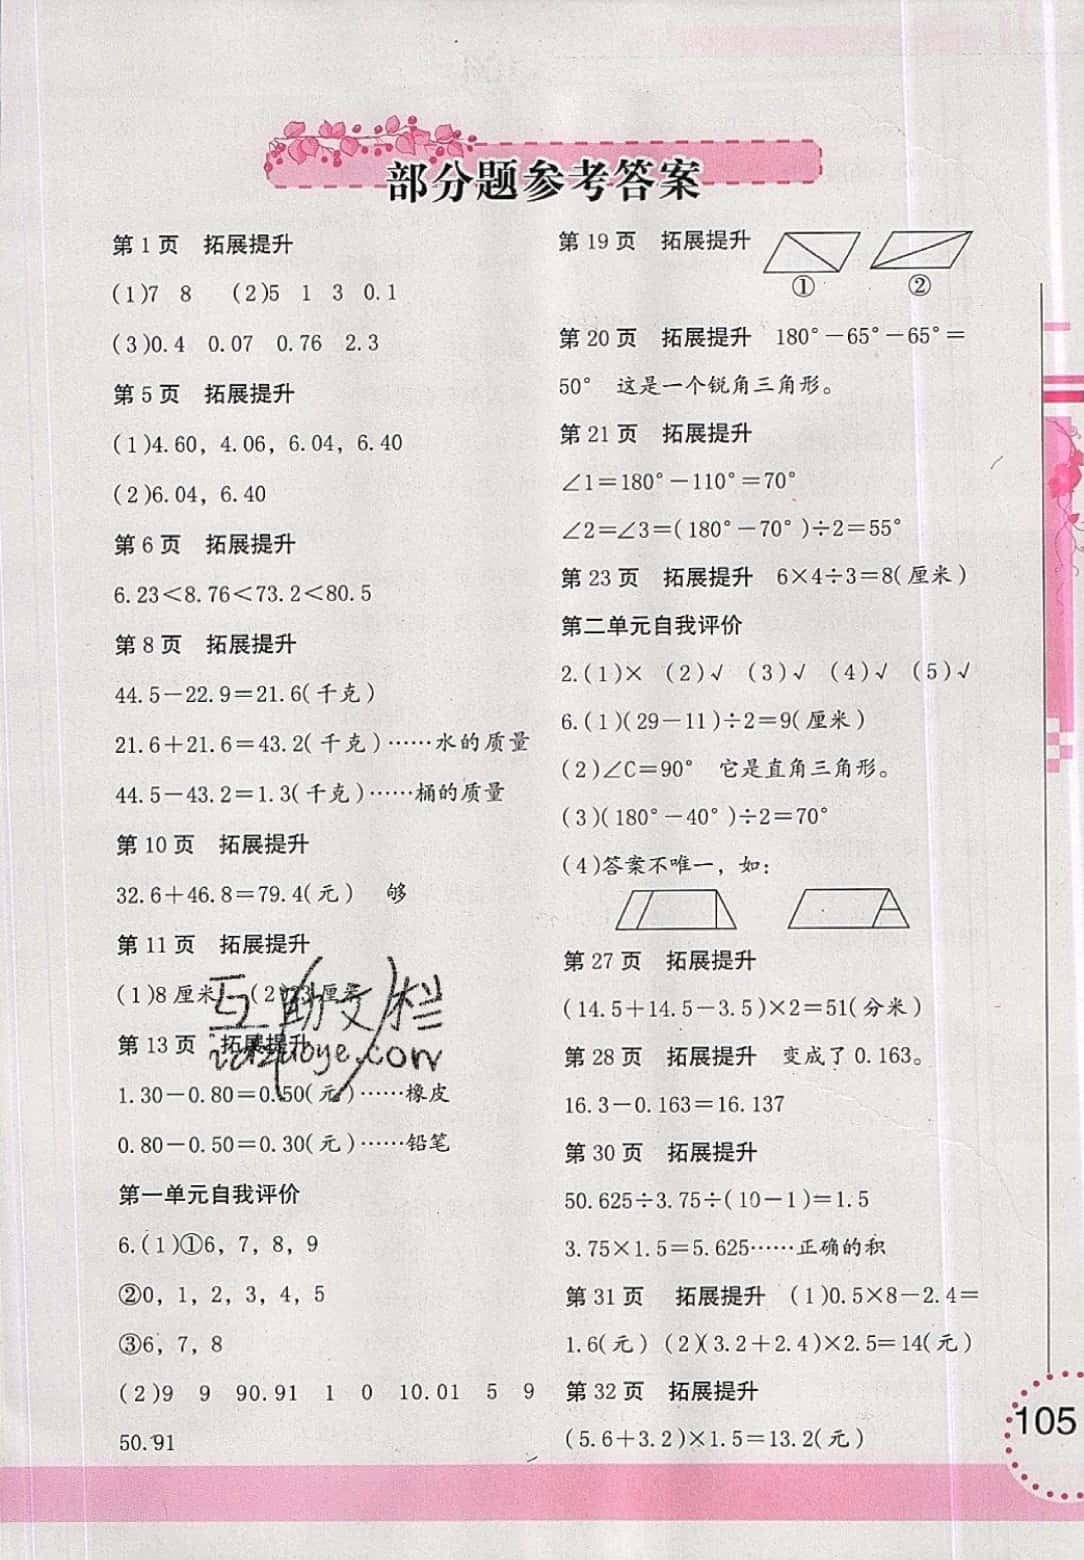 部分题参考答案
第1页 拓展提升
(1)7 8 (2)5 1 3 0.1
(3)0.4 0.07 0.76 2.3
第5页 拓展提升
(1)4.60，4.06，6.04，6.40
(2)6.04，6.40
第6页 拓展提升
6.23<8.76<73.2<80.5
第8页 拓展提升
44.5－22.9＝21.6(千克)
21.6＋21.6＝43.2(千克)……水的质量
44.5－43.2＝1.3(千克)……桶的质量
第10页 拓展提升
32.6＋46.8＝79.4(元) 够
第11页 拓展提升
(1)8厘米 (2) 厘米
第13页 拓展提升
1.30－0.80＝0.50(元)……橡皮
0.80－0.50＝0.30(元)……铅笔
第一单元自我评价
6.(1)①6，7，8，9
②0，1，2，3，4，5
③6，7，8
(2)9 9 90.91 1 0 10.01 5 9
50.91
第19页 拓展提升
① ②
第20页 拓展提升 180°－65°－65°＝
50° 这是一个锐角三角形。
第21页 拓展提升
∠1＝180°－110°＝70°
∠2＝∠3＝(180°－70°)÷2＝55°
第23页 拓展提升 6×4÷3＝8(厘米)
第二单元自我评价
2.(1)× (2)√ (3)√ (4)√ (5)√
6.(1)(29－11)÷2＝9(厘米)
(2)∠C＝90° 它是直角三角形。
(3)(180°－40°)÷2＝70°
(4)答案不唯一，如：
第27页 拓展提升
(14.5＋14.5－3.5)×2＝51(分米)
第28页 拓展提升 变成了0.163。
16.3－0.163＝16.137
第30页 拓展提升
50.625÷3.75÷(10－1)＝1.5
3.75×1.5＝5.625……正确的积
第31页 拓展提升 (1)0.5×8－2.4＝
1.6(元) (2)(3.2＋2.4)×2.5＝14(元)
第32页 拓展提升
(5.6＋3.2)×1.5＝13.2(元)
105
互助文栏